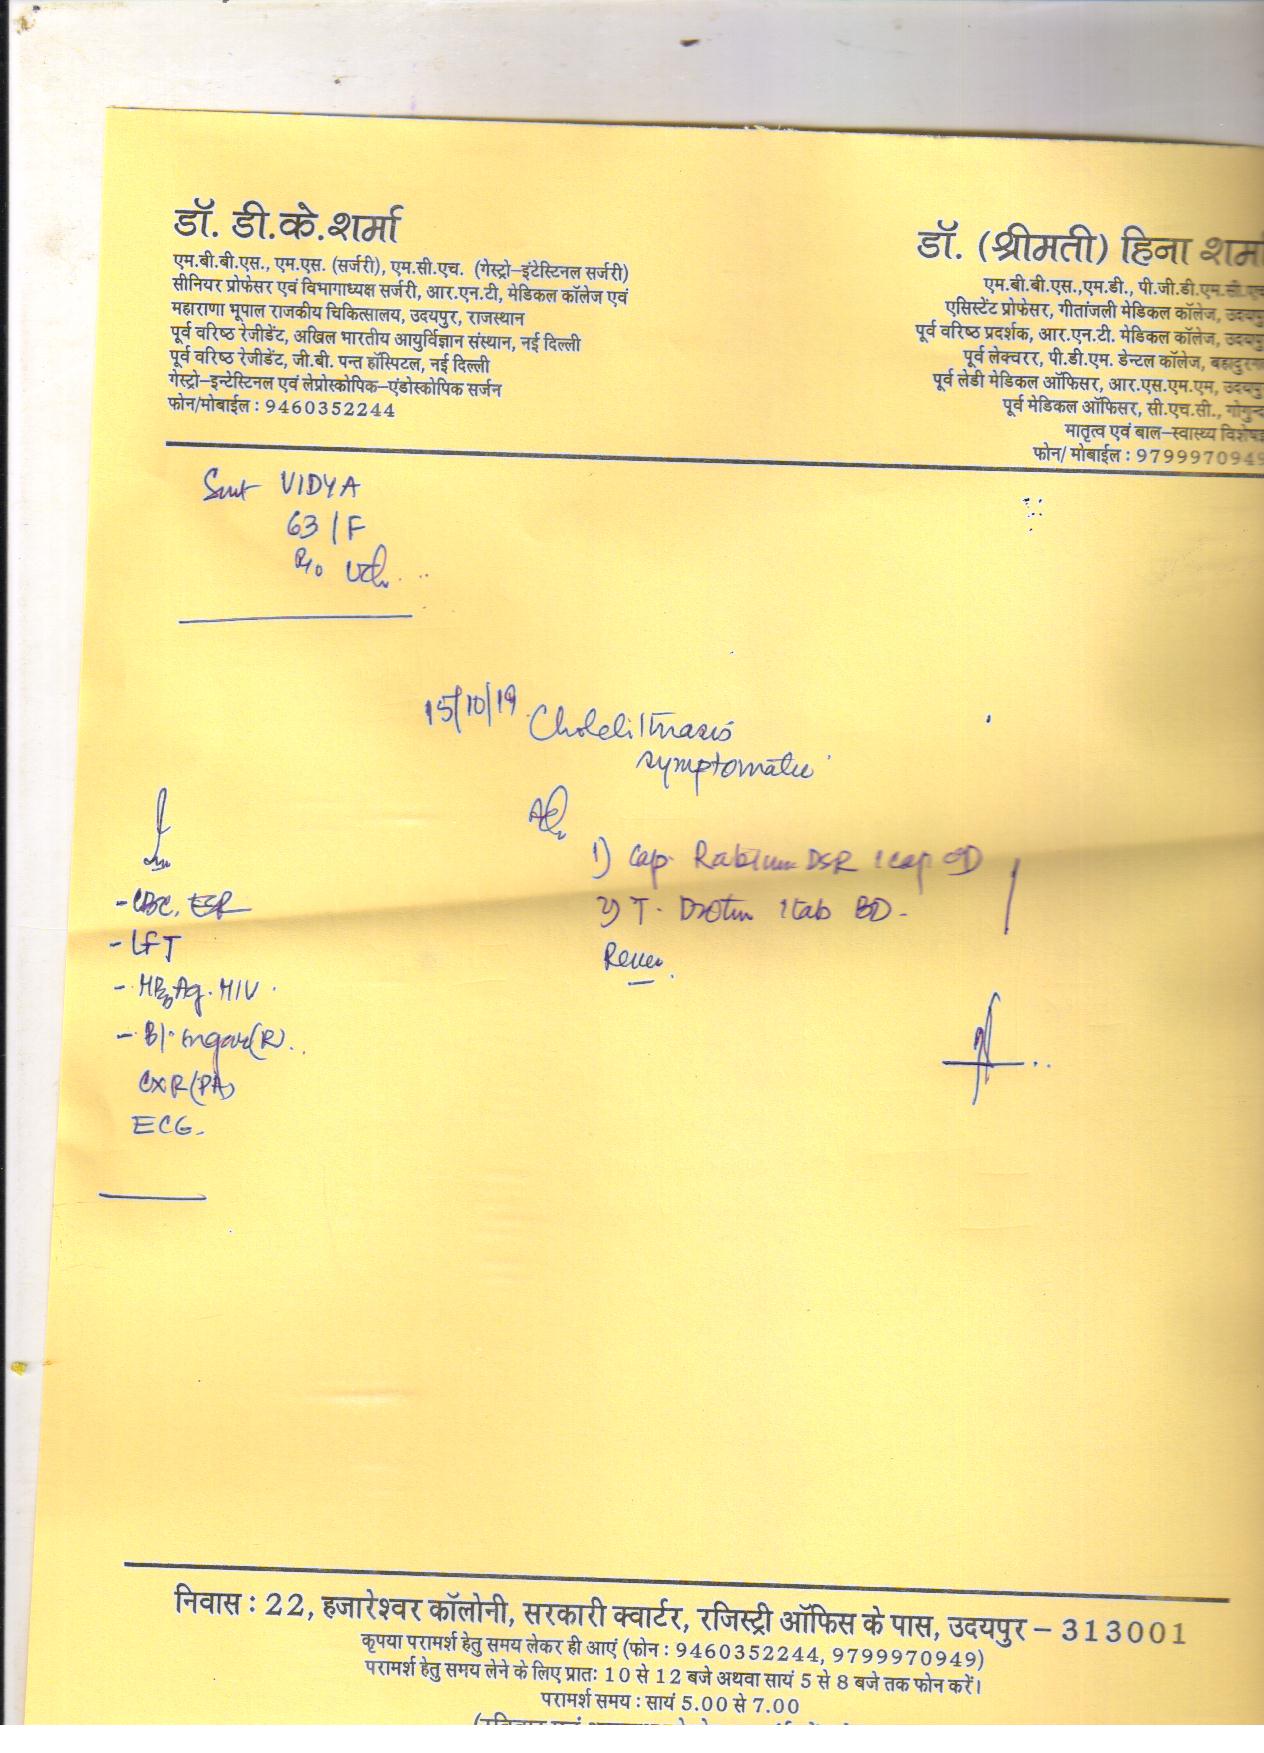 डॉ. डी.के.शर्मा
एम.बी.बी.एस., एम.एस. (सर्जरी), एम.सी.एच. (गेस्ट्रो-इंटेस्टिनल सर्जरी)
सीनियर प्रोफेसर एवं विभागाध्यक्ष सर्जरी, आर.एन.टी, मेडिकल कॉलेज एवं
महाराणा भूपाल राजकीय चिकित्सालय, उदयपुर, राजस्थान
पूर्व वरिष्ठ रेजीडेंट, अखिल भारतीय आयुर्विज्ञान संस्थान, नई दिल्ली
पूर्व वरिष्ठ रेजीडेंट, जी.बी. पन्त हॉस्पिटल, नई दिल्ली
गेस्ट्रो-इन्टेस्टिनल एवं लेप्रोस्कोपिक-एंडोस्कोपिक सर्जन
फोन/मोबाईल : 9460352244
डॉ. (श्रीमती) हिना शर्मा
एम.बी.बी.एस.,एम.डी., पी.जी.डी.एम.सी.एच
एसिस्टेंट प्रोफेसर, गीतांजली मेडिकल कॉलेज, उदयपु
पूर्व वरिष्ठ प्रदर्शक, आर.एन.टी. मेडिकल कॉलेज, उदयपु
पूर्व लेक्चरर, पी.डी.एम. डेन्टल कॉलेज, बहादुरग
पूर्व लेडी मेडिकल ऑफिसर, आर.एस.एम.एम, उदयपु
पूर्व मेडिकल ऑफिसर, सी.एच.सी., गोगुन्द
मातृत्व एवं बाल-स्वास्थ्य विशेषज्ञ
फोन/ मोबाईल : 9799970949
Smt VIDYA
63/F
R/o Udr.
15/10/19 Cholelithiasis
symptomatic
Adv
1) Cap. Rabium DSR 1 cap OD
2) T. Drotin 1 tab BD.
Review.
- CBC, ESR
- LFT
- HBsAg. HIV.
- Bl. sugar (R).
CXR (PA)
ECG.
निवास : 22, हजारेश्वर कॉलोनी, सरकारी क्वार्टर, रजिस्ट्री ऑफिस के पास, उदयपुर – 313001
कृपया परामर्श हेतु समय लेकर ही आएं (फोन : 9460352244, 9799970949)
परामर्श हेतु समय लेने के लिए प्रातः 10 से 12 बजे अथवा सायं 5 से 8 बजे तक फोन करें।
परामर्श समय : सायं 5.00 से 7.00